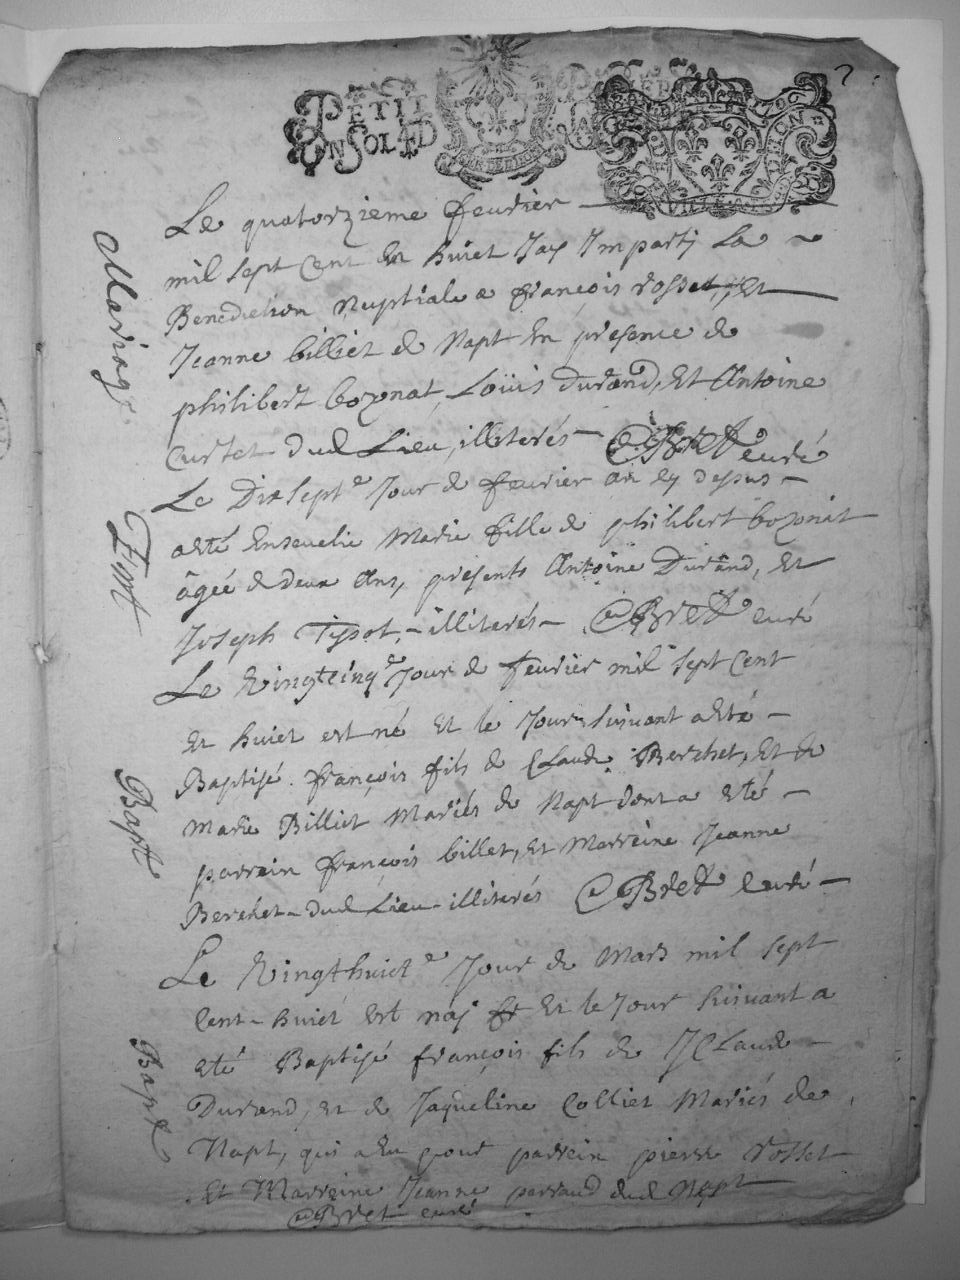 PETIT PAPIER
UN SOL 4 D
GEN DE DIION
2
1706
Mariag.
Le quatorzieme feurier
mil sept Cent et huict Jay Imparty La
Benediction Nuptiale a françois rosset, Et
Jeanne billiet de Napt En presence de
philibert bozonat, Loüis durand, Et Antoine
Curtet dud Lieu, illiterés CBret curé
Mort
Le Dixsept.e Jour de feurier an q dessus
a eté Enseuelie Marie fille de philibert bozonat
âgée de deux Ans, presents Antoine Durand, Et
Joseph Tissot, illiterés CBret curé
Bapt
Le Vingtcinq.e Jour de feurier mil sept Cent
et huict est né Et le Jour suiuant a eté
Baptisé françois fils de Claude Berchet, Et de
Marie Billiet Mariés de Napt dont a eté
parrain françois billet, Et Marreine Jeanne
Berchet dud Lieu illiterés CBret Curé
Bapt
Le Vingthuict.e Jour de Mars mil sept
Cent huict est naj Et le Jour suiuant a
eté Baptisé françois fils de JClaude
Durand, et de Jaqueline Colliet Mariés de
Napt, qui a eu pour parrein pierre rosset
Et Marreine Jeanne perraud dud Napt
CBret curé